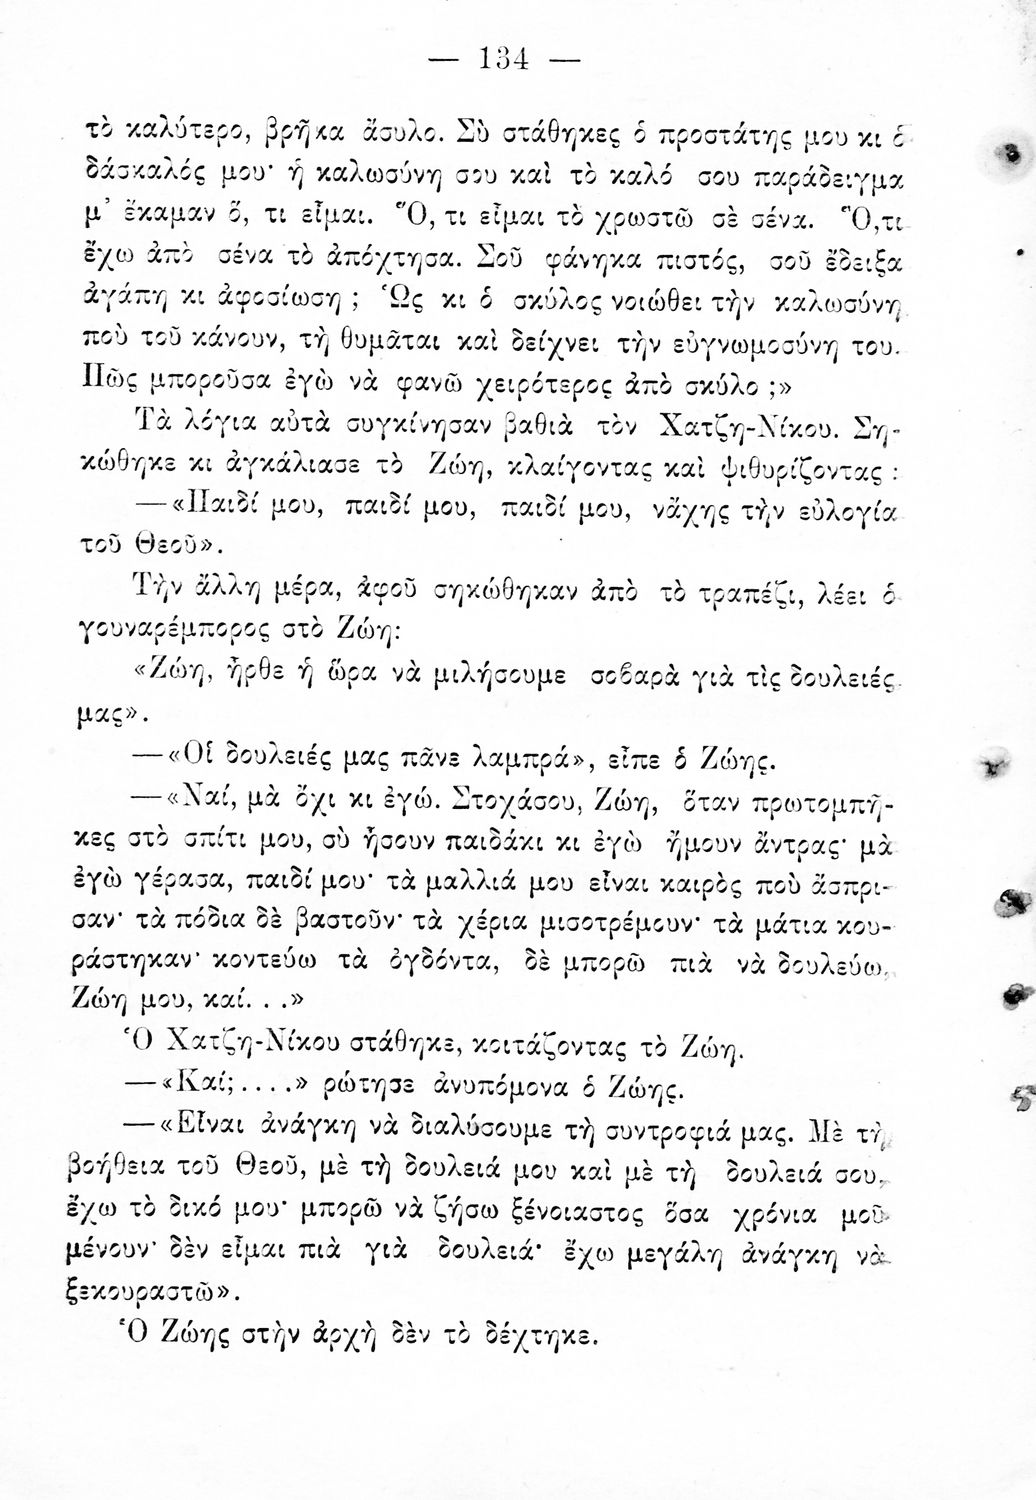 — 134 —
τὸ καλύτερο, βρῆκα ἄσυλο. Σὺ στάθηκες ὁ προστάτης μου κι ὁ
δάσκαλός μου· ἡ καλωσύνη σου καὶ τὸ καλό σου παράδειγμα
μ᾿ ἔκαμαν ὅ, τι εἶμαι. Ὅ, τι εἶμαι τὸ χρωστῶ σὲ σένα. Ὅ,τι
ἔχω ἀπὸ σένα τὸ ἀπόχτησα. Σοῦ φάνηκα πιστός, σοῦ ἔδειξα
ἀγάπη κι ἀφοσίωση ; Ὡς κι ὁ σκύλος νοιώθει τὴν καλωσύνη
ποὺ τοῦ κάνουν, τὴ θυμᾶται καὶ δείχνει τὴν εὐγνωμοσύνη του.
Πῶς μποροῦσα ἐγὼ νὰ φανῶ χειρότερος ἀπὸ σκύλο ;»
Τὰ λόγια αὐτὰ συγκίνησαν βαθιὰ τὸν Χατζη-Νίκου. Ση-
κώθηκε κι ἀγκάλιασε τὸ Ζώη, κλαίγοντας καὶ ψιθυρίζοντας :
—«Παιδί μου, παιδί μου, παιδί μου, νἄχης τὴν εὐλογία
τοῦ Θεοῦ».
Τὴν ἄλλη μέρα, ἀφοῦ σηκώθηκαν ἀπὸ τὸ τραπέζι, λέει ὁ
γουναρέμπορος στὸ Ζώη:
«Ζώη, ἦρθε ἡ ὥρα νὰ μιλήσουμε σοβαρὰ γιὰ τὶς δουλειές
μας».
—«Οἱ δουλειές μας πᾶνε λαμπρά», εἶπε ὁ Ζώης.
—«Ναί, μὰ ὄχι κι ἐγώ. Στοχάσου, Ζώη, ὅταν πρωτομπῆ-
κες στὸ σπίτι μου, σὺ ἤσουν παιδάκι κι ἐγὼ ἤμουν ἄντρας· μὰ
ἐγὼ γέρασα, παιδί μου· τὰ μαλλιά μου εἶναι καιρὸς ποὺ ἄσπρι-
σαν· τὰ πόδια δὲ βαστοῦν· τὰ χέρια μισοτρέμουν· τὰ μάτια κου-
ράστηκαν· κοντεύω τὰ ὀγδόντα, δὲ μπορῶ πιὰ νὰ δουλεύω,
Ζώη μου, καί. . .»
Ὁ Χατζη-Νίκου στάθηκε, κοιτάζοντας τὸ Ζώη.
—«Καί;....» ρώτησε ἀνυπόμονα ὁ Ζώης.
—«Εἶναι ἀνάγκη νὰ διαλύσουμε τὴ συντροφιά μας. Μὲ τὴ
βοήθεια τοῦ Θεοῦ, μὲ τὴ δουλειά μου καὶ μὲ τὴ δουλειά σου,
ἔχω τὸ δικό μου· μπορῶ νὰ ζήσω ξένοιαστος ὅσα χρόνια μοῦ
μένουν· δὲν εἶμαι πιὰ γιὰ δουλειά· ἔχω μεγάλη ἀνάγκη νὰ
ξεκουραστῶ».
Ὁ Ζώης στὴν ἀρχὴ δὲν τὸ δέχτηκε.